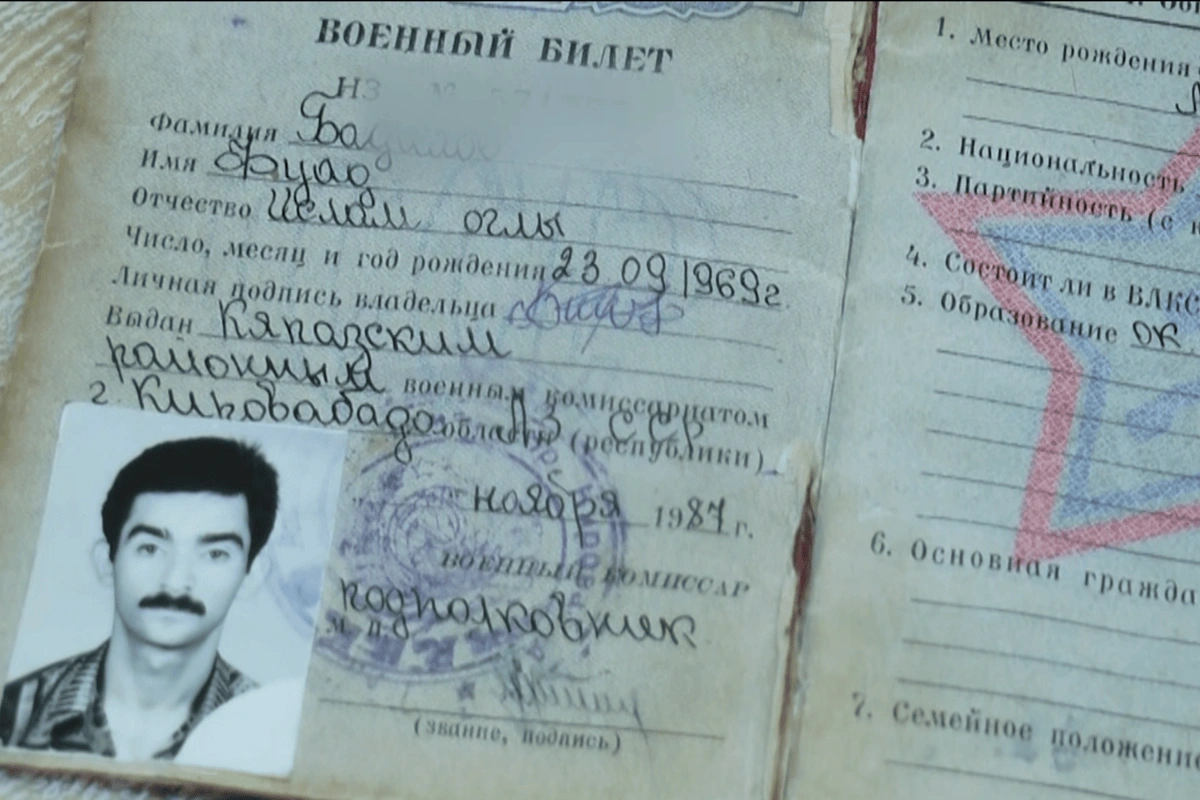 ВОЕННЫЙ БИЛЕТ
НЗ №
Фамилия
Имя Фуад
Отчество Ислам оглы
Число, месяц и год рождения 23 09 1969г.
Личная подпись владельца
Выдан Кяпазским
районным военным комиссариатом
г. Кировабада Аз ССР области (республики)
ноября 1987 г.
ВОЕННЫЙ КОМИССАР
подполковник
М. П.
(звание, подпись)
1. Место рождения
2. Национальность
3. Партийность (с
4. Состоит ли в ВЛКС
5. Образование
6. Основная гражда
7. Семейное положение